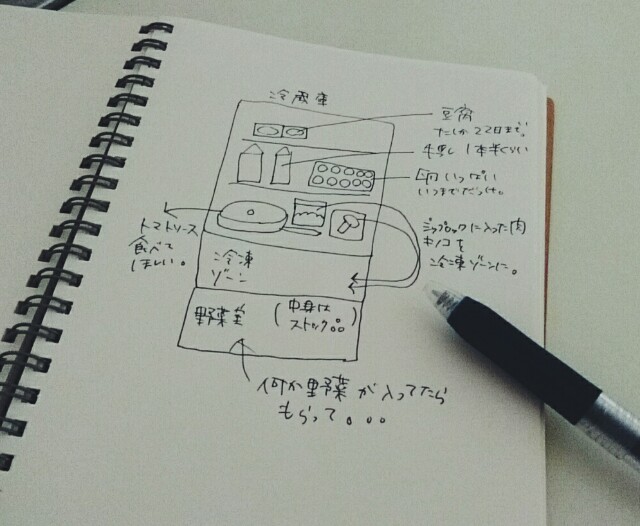 冷蔵庫
豆腐
たしか22日まで。
牛乳 1本半くらい
卵いっぱい
いつまでだっけ。
トマトソース
食べて
ほしい。
ジップロックに入った肉
キノコを
冷凍ゾーンに。
冷凍
ゾーン
野菜室
(中身は
ストック品)
何か野菜が入ってたら
もらって。。。